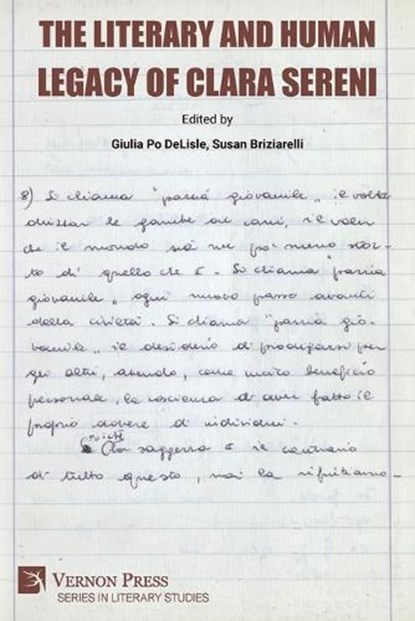 THE LITERARY AND HUMAN
LEGACY OF CLARA SERENI
Edited by
Giulia Po DeLisle, Susan Briziarelli
8) Si chiama "pazzia giovanile" il voler
drizzar le gambe ai cani, il voler
che il mondo sia un po' meno stor-
to di quello che è. Si chiama "pazzia
giovanile" ogni nuovo passo avanti
della civiltà. Si chiama "pazzia gio-
vanile" il desiderio di prodigarsi per
gli altri, avendo, come unico beneficio
personale, la coscienza di aver fatto il
proprio dovere di individui.
poiché
la saggezza è il contrario
di tutto questo, noi la rifiutiamo.
VERNON PRESS
SERIES IN LITERARY STUDIES